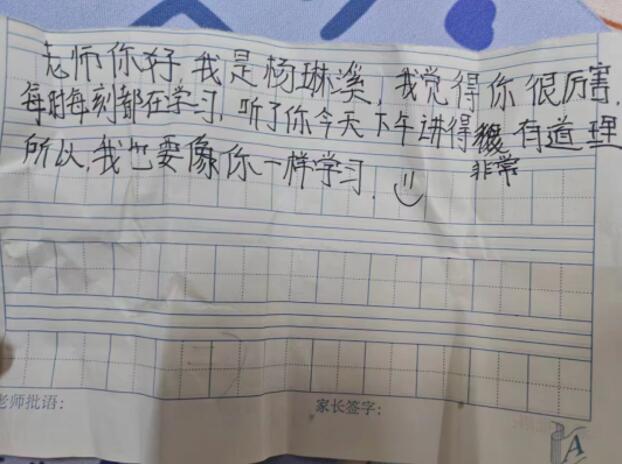 老师你好,我是杨琳溪,我觉得你很厉害,
每时每刻都在学习,听了你今天下午讲得 有道理
非常
所以,我也要像你一样学习.
老师批语:
家长签字:
A